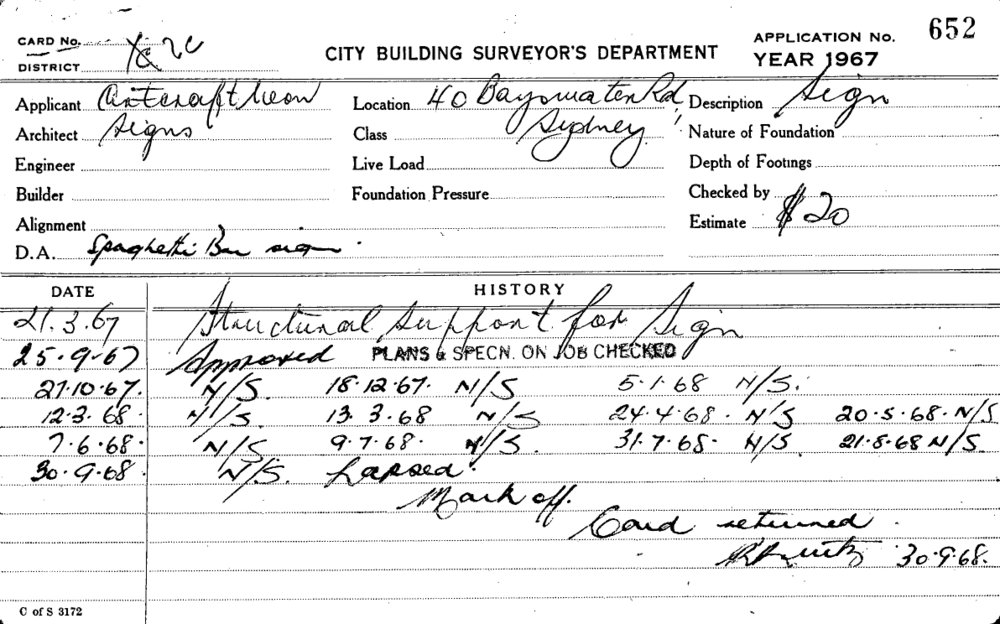 CARD No. APPLICATION No. 652
DISTRICT CITY BUILDING SURVEYOR'S DEPARTMENT YEAR 1967
Applicant Artcraft Neon Location 40 Bayswater Rd, Description Sign
Architect Signs Class Sydney Nature of Foundation
Engineer Live Load Depth of Footings
Builder Foundation Pressure Checked by
Alignment Estimate $20
D.A. Spaghetti Bar sign.
DATE HISTORY
21.3.67 Structural support for Sign
25.9.67 Approved PLANS & SPECN. ON JOB CHECKED
27.10.67. N/S. 18.12.67. N/S 5.1.68 N/S.
12.3.68. N/S. 13.3.68 N/S 24.4.68. N/S 20.5.68. N/S
7.6.68. N/S. 9.7.68. N/S. 31.7.68. N/S. 21.8.68 N/S.
30.9.68. N/S. Lapsed.
Mark off.
Card returned.
30.9.68.
C of S 3172